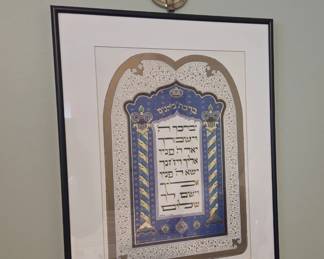 ברכת כהנים
יברכך ה׳
וישמרך
יאר ה׳ פניו
אליך ויחנך
ישא ה׳ פניו
אליך
וישם לך
שלום